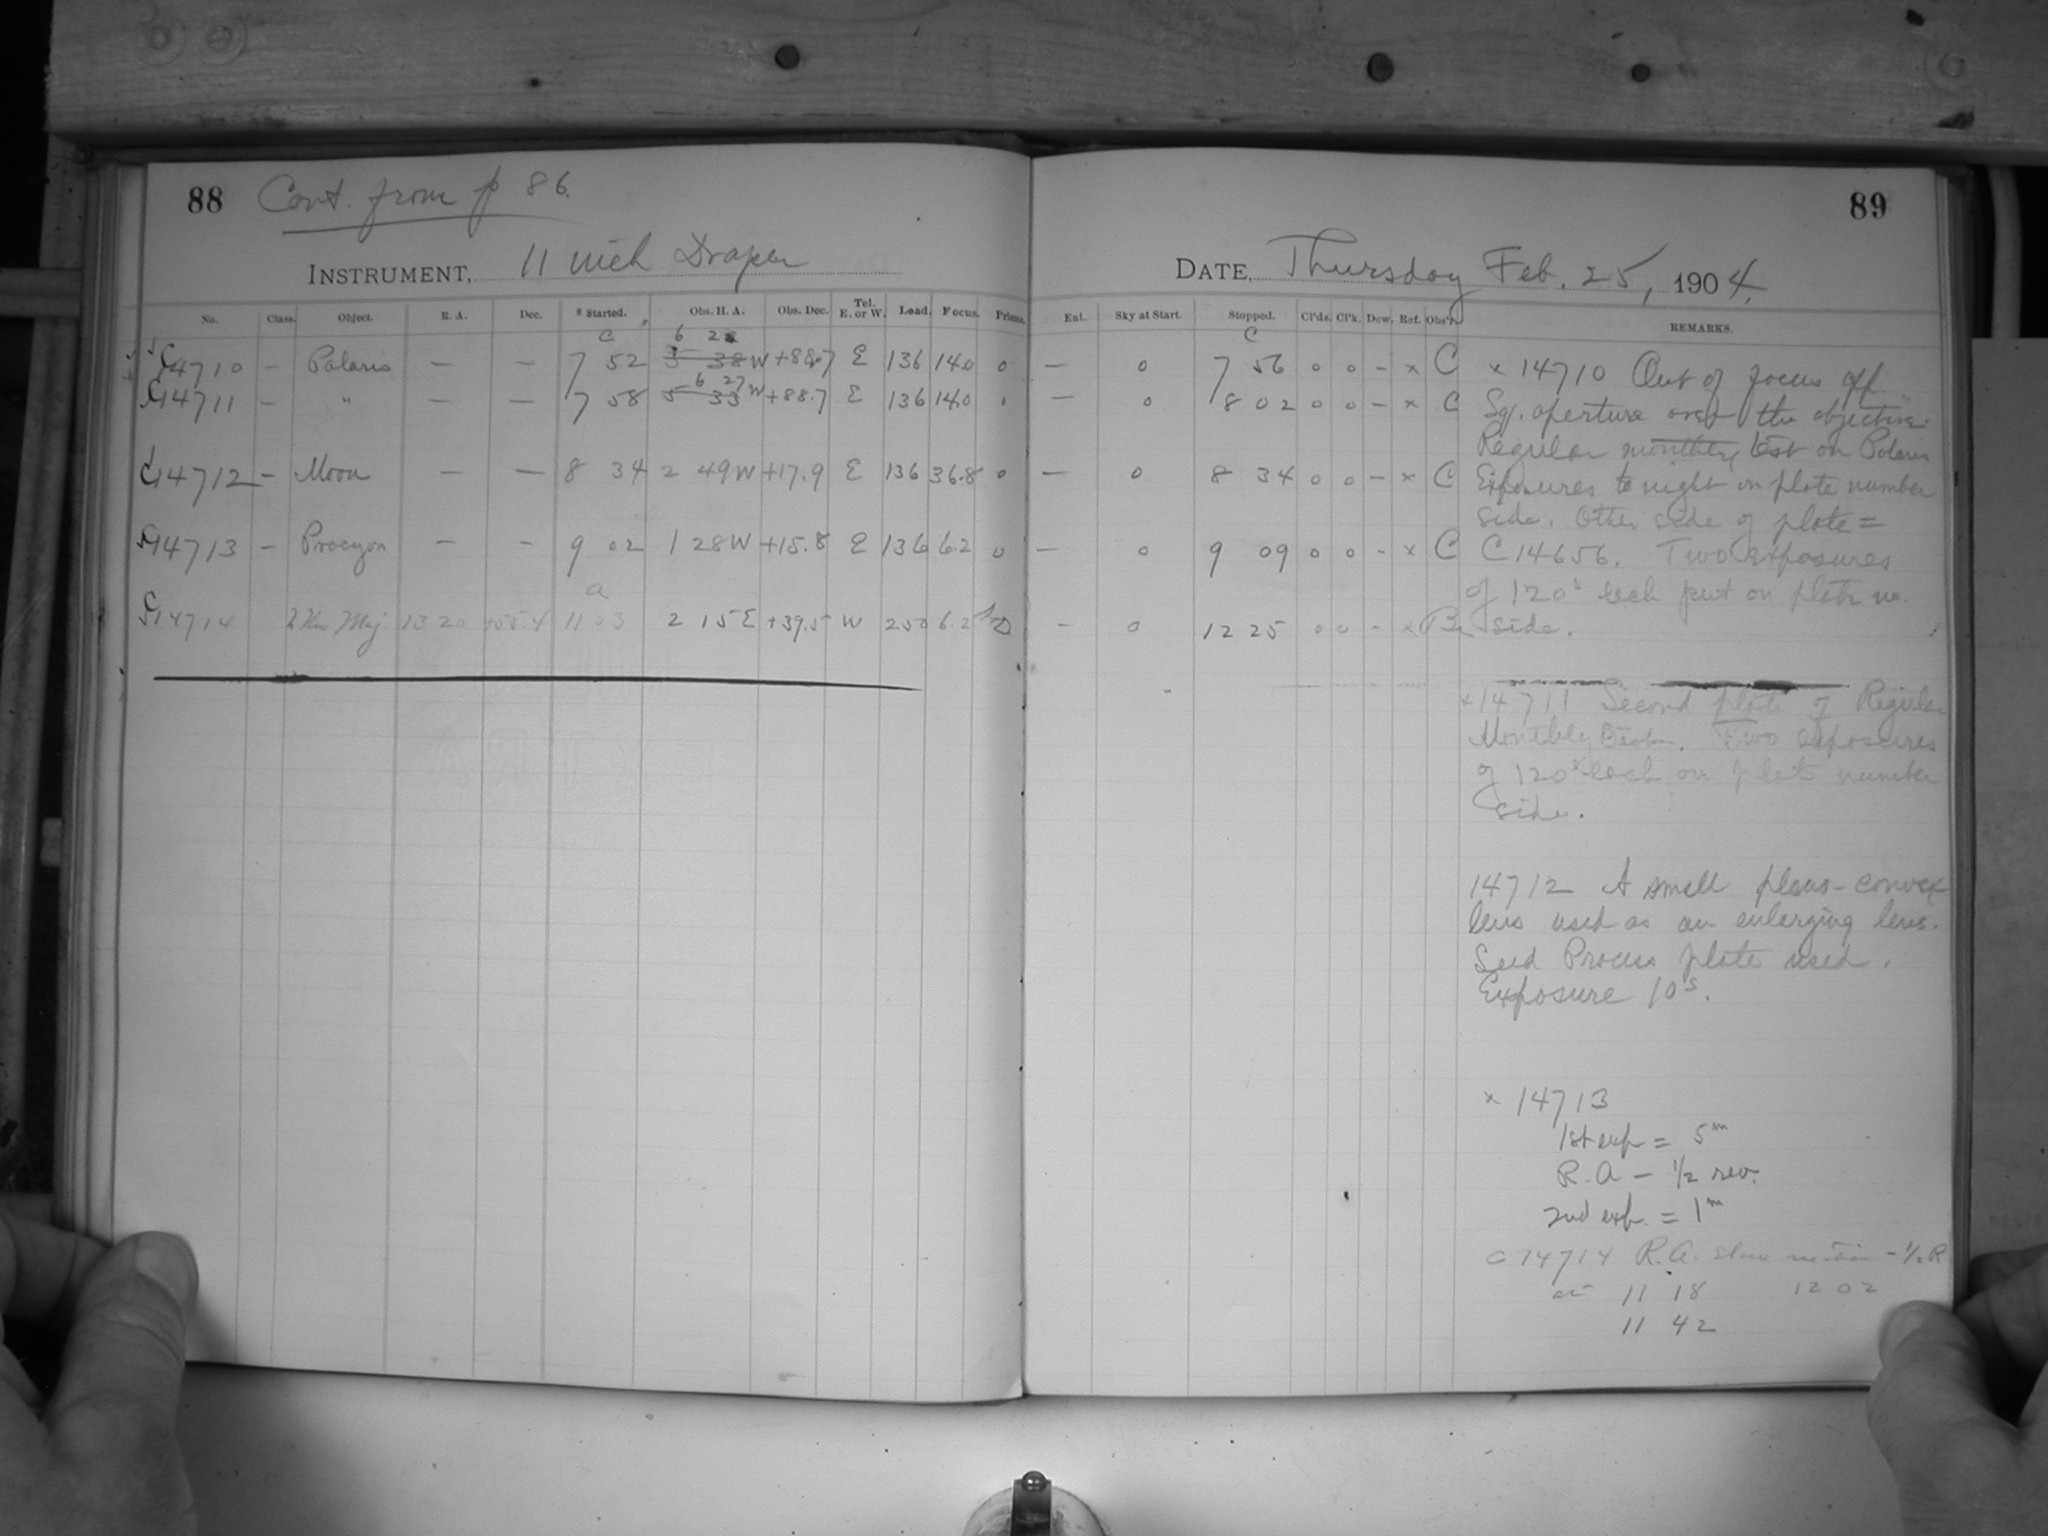 88 Cont. from p 86.
INSTRUMENT, 11 inch Draper
No. Class. Object. R. A. Dec. Started. Obs. H. A. Obs. Dec. Tel. E. or W. Load. Focus. Prisms.
C
6 28
C14710 — Polaris — — 7 52 5 38 W +88.7 E 136 14.0 0
6 27
C14711 — " — — 7 58 5 33 W +88.7 E 136 14.0
C14712 — Moon — — 8 34 2 49 W +17.9 E 136 36.8 0
C14713 — Procyon — — 9 02 1 28 W +15.8 E 136 6.2 0
a
C14714 Maj 13 20 +55.4 11 03 2 15 E +39.5 W 250 6.2
89
DATE, Thursday Feb. 25, 1904.
Enl. Sky at Start. Stopped. Cl'ds. Cl'k. Dew. Ref. Obs'r. REMARKS.
C
— 0 7 56 0 0 — x C
— 0 8 02 0 0 — x C
— 0 8 34 0 0 — x C
— 0 9 09 0 0 — x C
— 0 12 25 0 0 — x
x 14710 Out of focus off
Sq. aperture over the objective.
Regular monthly test on Polaris
Exposures to night on plate number
side. Other side of plate =
C 14656. Two exposures
of 120s each put on plate no.
side.
x 14711 Second plate of Regular
Monthly test. Two exposures
of 120s each on plate number
side.
14712 A small plano-convex
lens used as an enlarging lens.
Seed Process plate used.
Exposure 10s.
x 14713
1st exp = 5m
R. A — 1/2 rev.
2nd exp. = 1m
C 14714 R.A. slow motion - 1/2 R
at 11 18 12 02
11 42